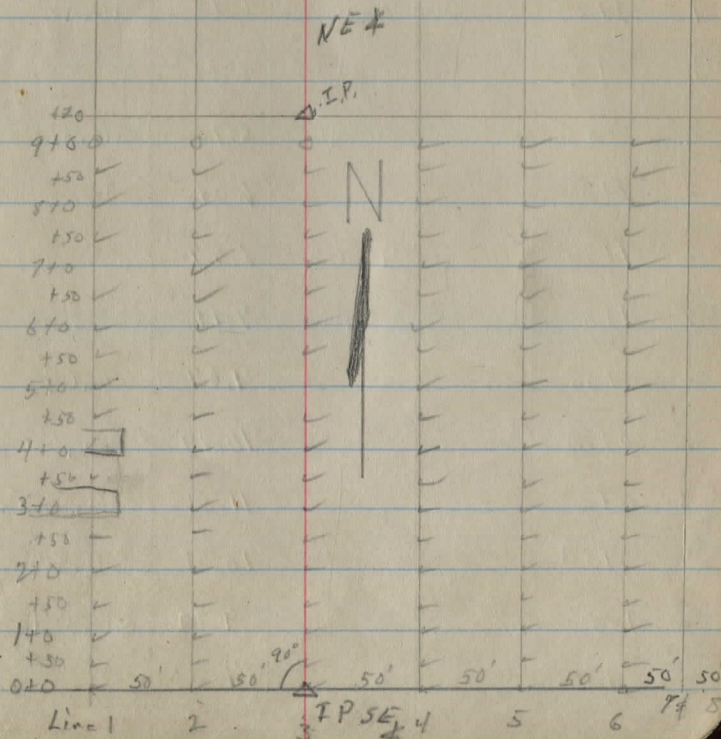 NE⅊
I.P.
+20
9+0
+50
8+0
N
+50
7+0
+50
6+0
+50
5+0
+50
4+0
+50
3+0
+50
2+0
+50
1+0
+50
90°
0+0 50' 50' 50' 50' 50' 50' 50
IP SE
Line 1 2 3 4 5 6 7 8